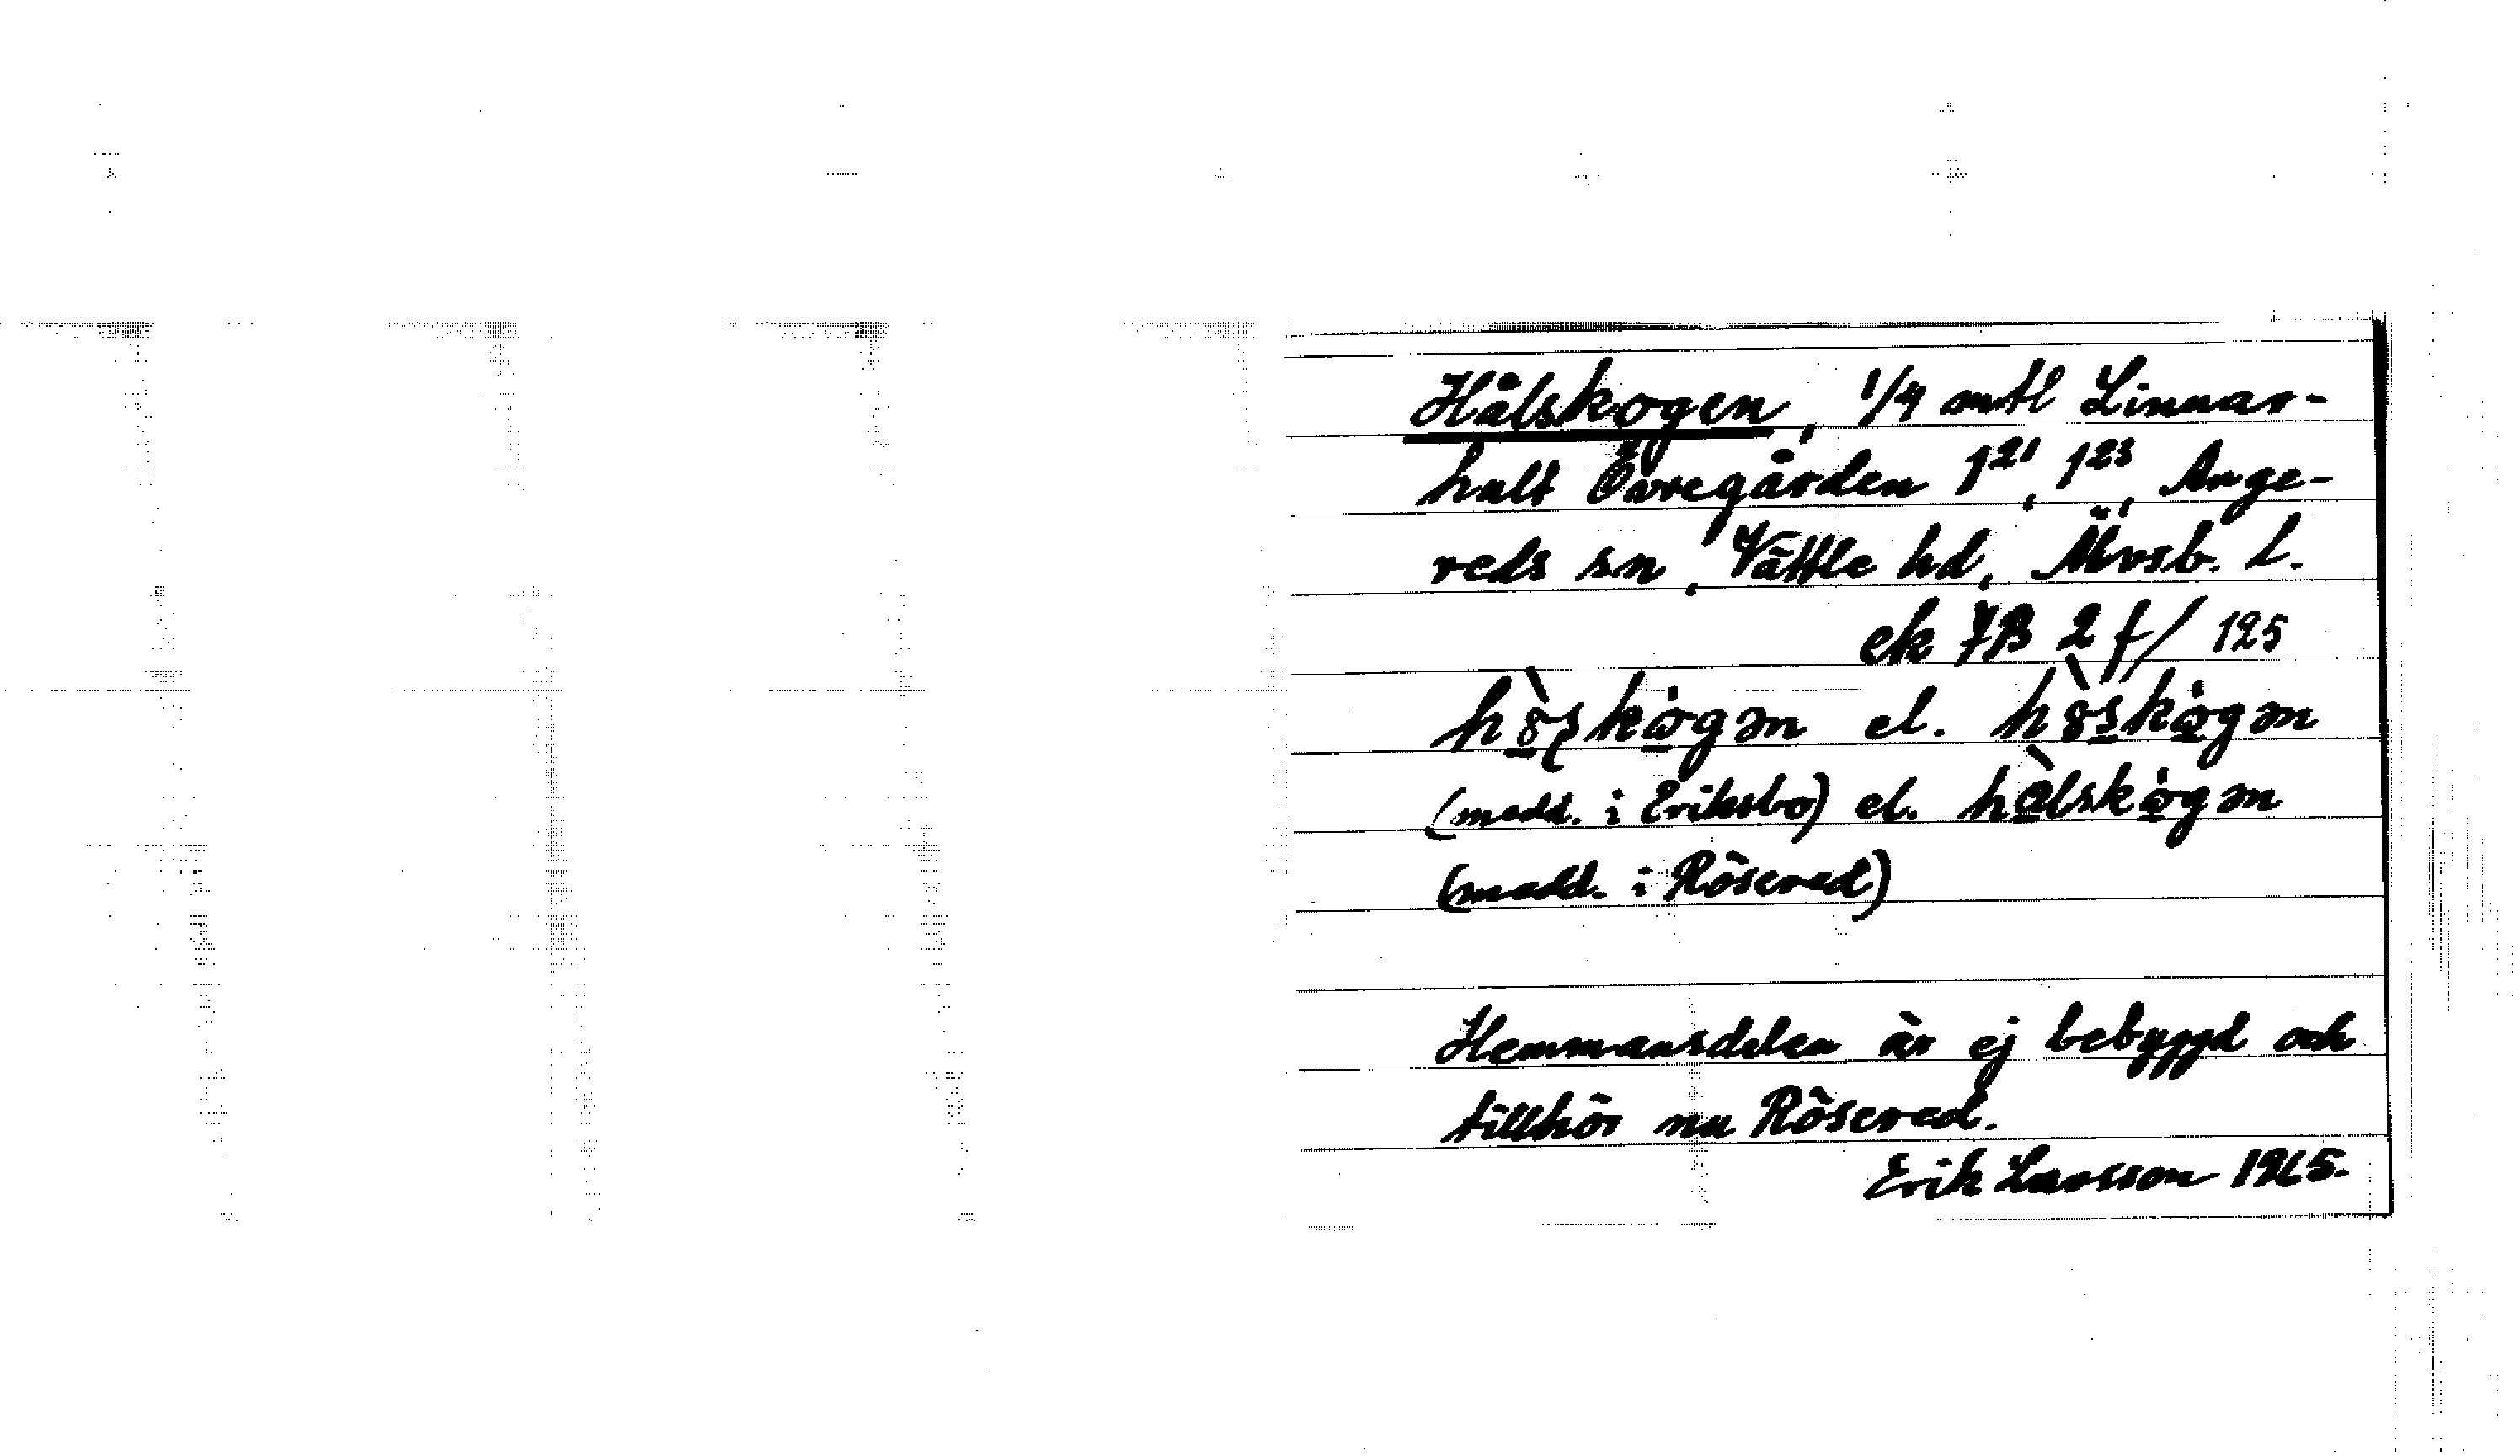 Hålskogen, 1/4 mtl Linnar-
hult Övregården 1²¹, 1²³, Ange-
reds sn, Vättle hd, Älvsb. l.
ek JB 2 f/125
el.
(medd. i Eriksbo) el.
(medd. i Rösered)
Hemmansdelen är ej bebyggd och
tillhör nu Rösered.
Erik Larsson 1965.